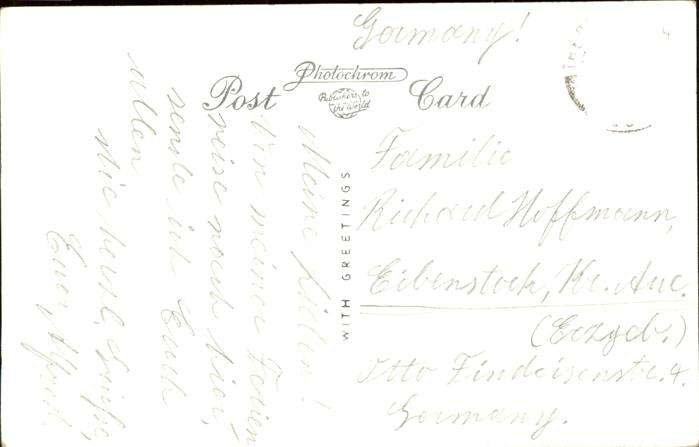 Germany!
Photochrom
Post Card
Publishers to
the World
WITH GREETINGS
Meine Lieben!
Von meiner Ferien
reise nach hier,
sende ich Euch
allen
die herzl. Grüße,
Euer Alfred.
Familie
Richard Hoffmann,
Eibenstock, Kr. Aue.
(Erzgeb.)
Otto Findeisenstr. 4.
Germany.